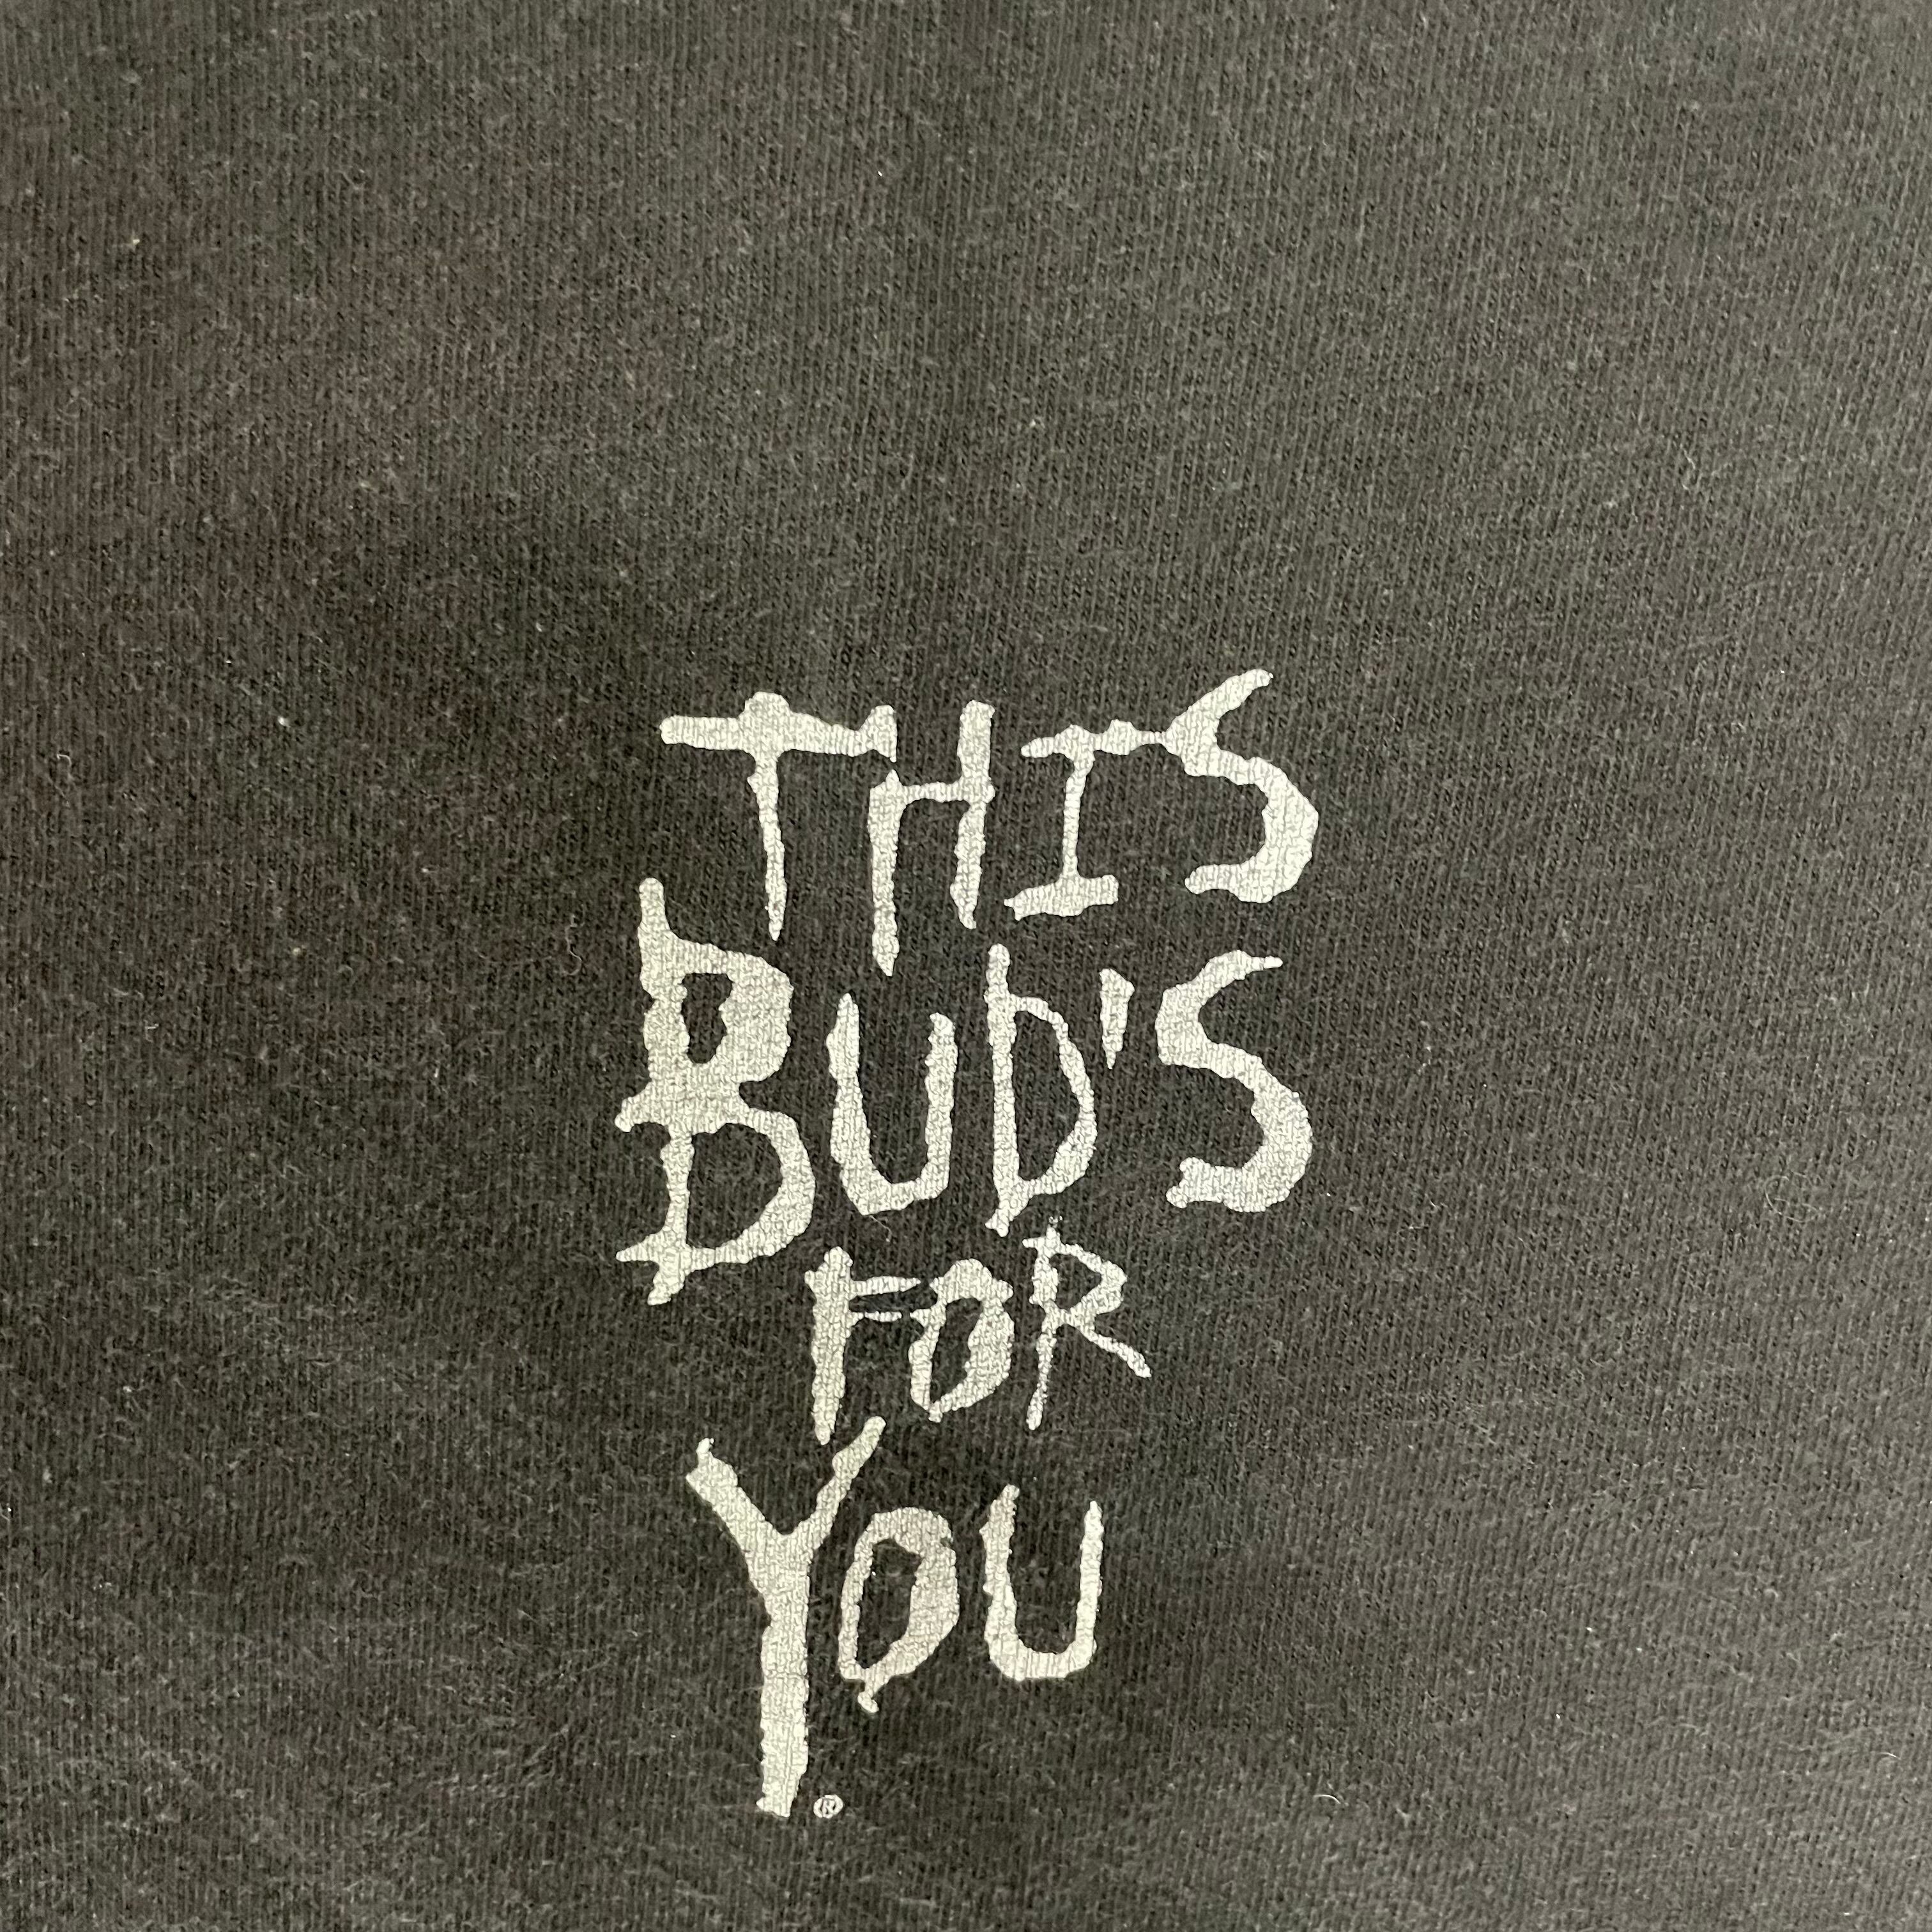 THIS
BUD'S
FOR
YOU
®